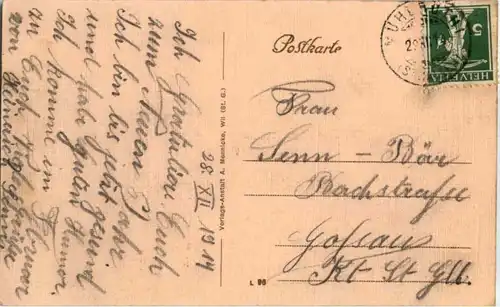 Ich Gratuliere Euch
zum Neuen Jahr
Ich bin bis jetzt gesund
und habe guten Humor.
Ich komme im
an Euch
von
28. XII 1914
Verlags-Anstalt A. Mennicke, Wil (St. G.)
Postkarte
Frau
Senn - Bär
Bachstrasse
Gossau
Kt St Gll.
L 98
HELVETIA
5